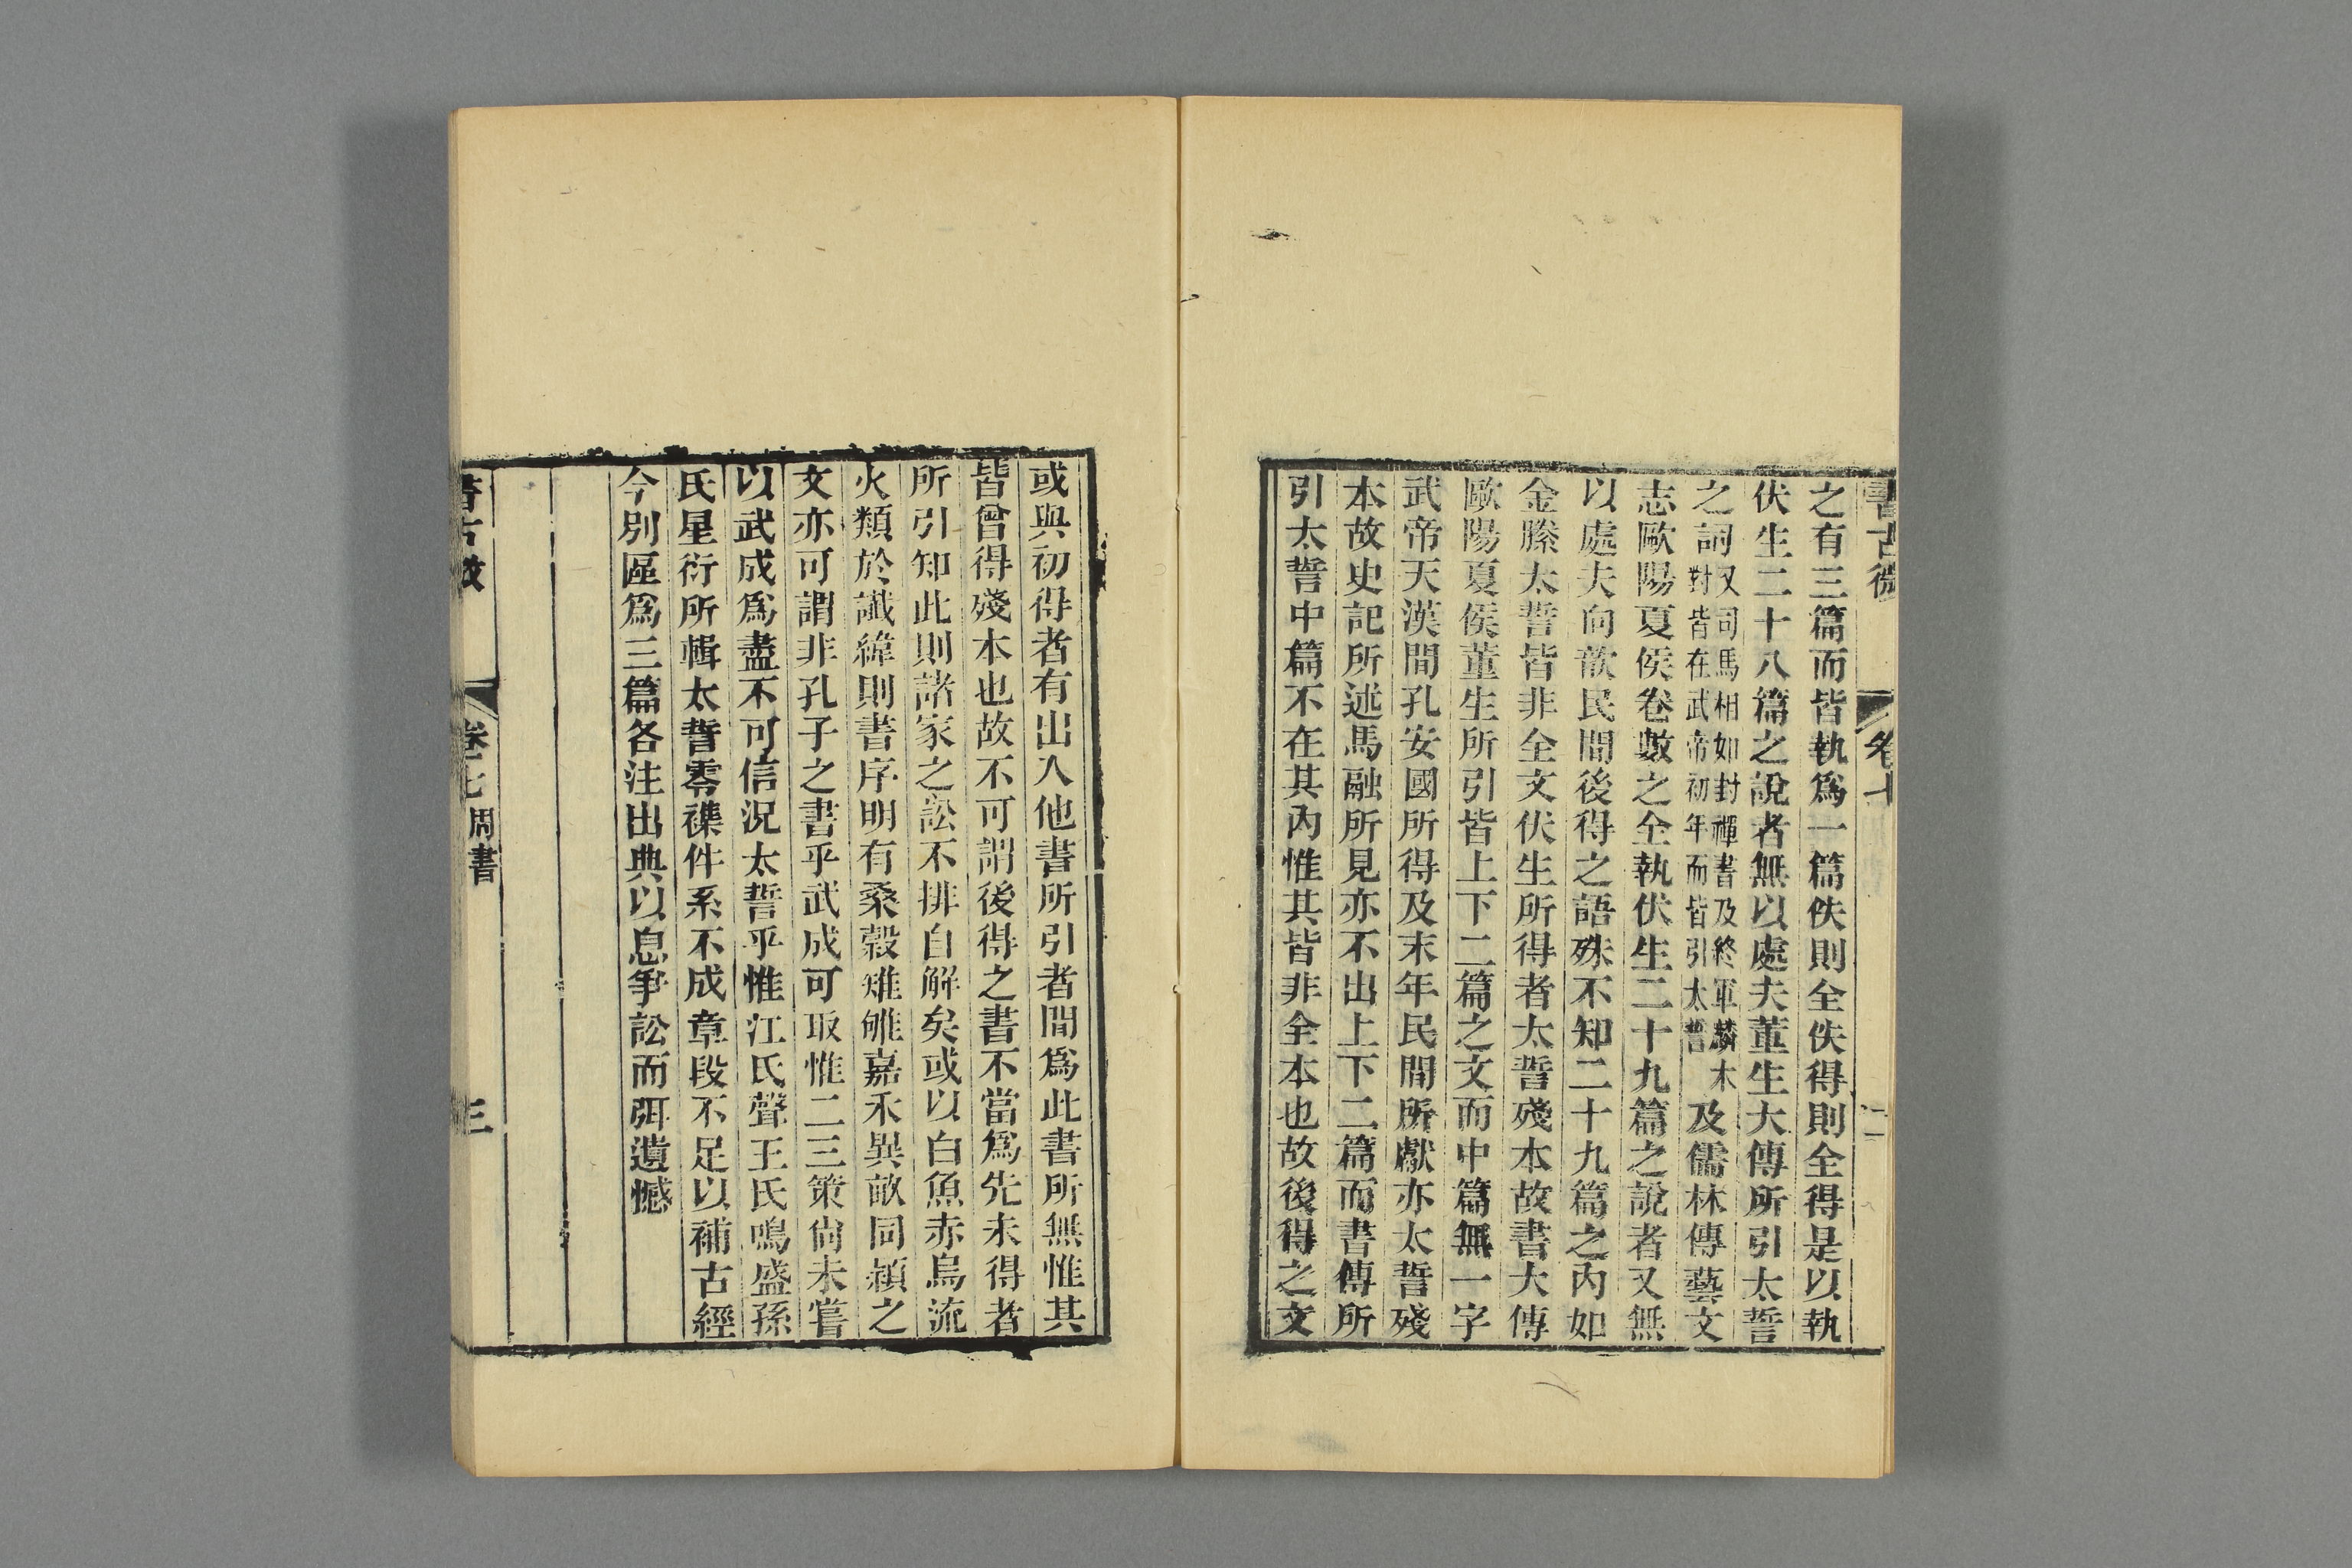 書古微
卷七
二
之有三篇而皆執爲一篇佚則全佚得則全得是以執
伏生二十八篇之說者無以處夫董生大傳所引太誓
之詞又司馬相如封禪書及終軍麟木對皆在武帝初年而皆引太誓及儒林傳藝文
志歐陽夏侯卷數之全執伏生二十九篇之說者又無
以處夫向歆民間後得之語殊不知二十九篇之內如
金縢太誓皆非全文伏生所得者太誓殘本故書大傳
歐陽夏侯董生所引皆上下二篇之文而中篇無一字
武帝天漢間孔安國所得及末年民間所獻亦太誓殘
本故史記所述馬融所見亦不出上下二篇而書傳所
引太誓中篇不在其內惟其皆非全本也故後得之文
或與初得者有出入他書所引者間爲此書所無惟其
皆曾得殘本也故不可謂後得之書不當爲先未得者
所引知此則諸家之訟不排自解矣或以白魚赤烏流
火類於讖緯則書序明有桑穀雉雊嘉禾異畝同穎之
文亦可謂非孔子之書乎武成可取惟二三策尙未嘗
以武成爲盡不可信況太誓乎惟江氏聲王氏鳴盛孫
氏星衍所輯太誓零襍件系不成章段不足以補古經
今別區爲三篇各注出典以息爭訟而弭遺憾
書古微
卷七周書
三